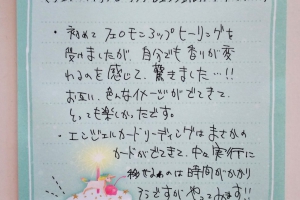 ・初めて フェロモンアップヒーリングを
受けましたが、自分でも香りが変
わるのを感じて、驚きました…!!
お互い、色んなイメージがでてきて、
とっても楽しかったです。
・エンジェルカードリーディングは まさかの
カードがでてきて、中々実行に
移せるのは 時間がかかり
そうですが やってみます!!